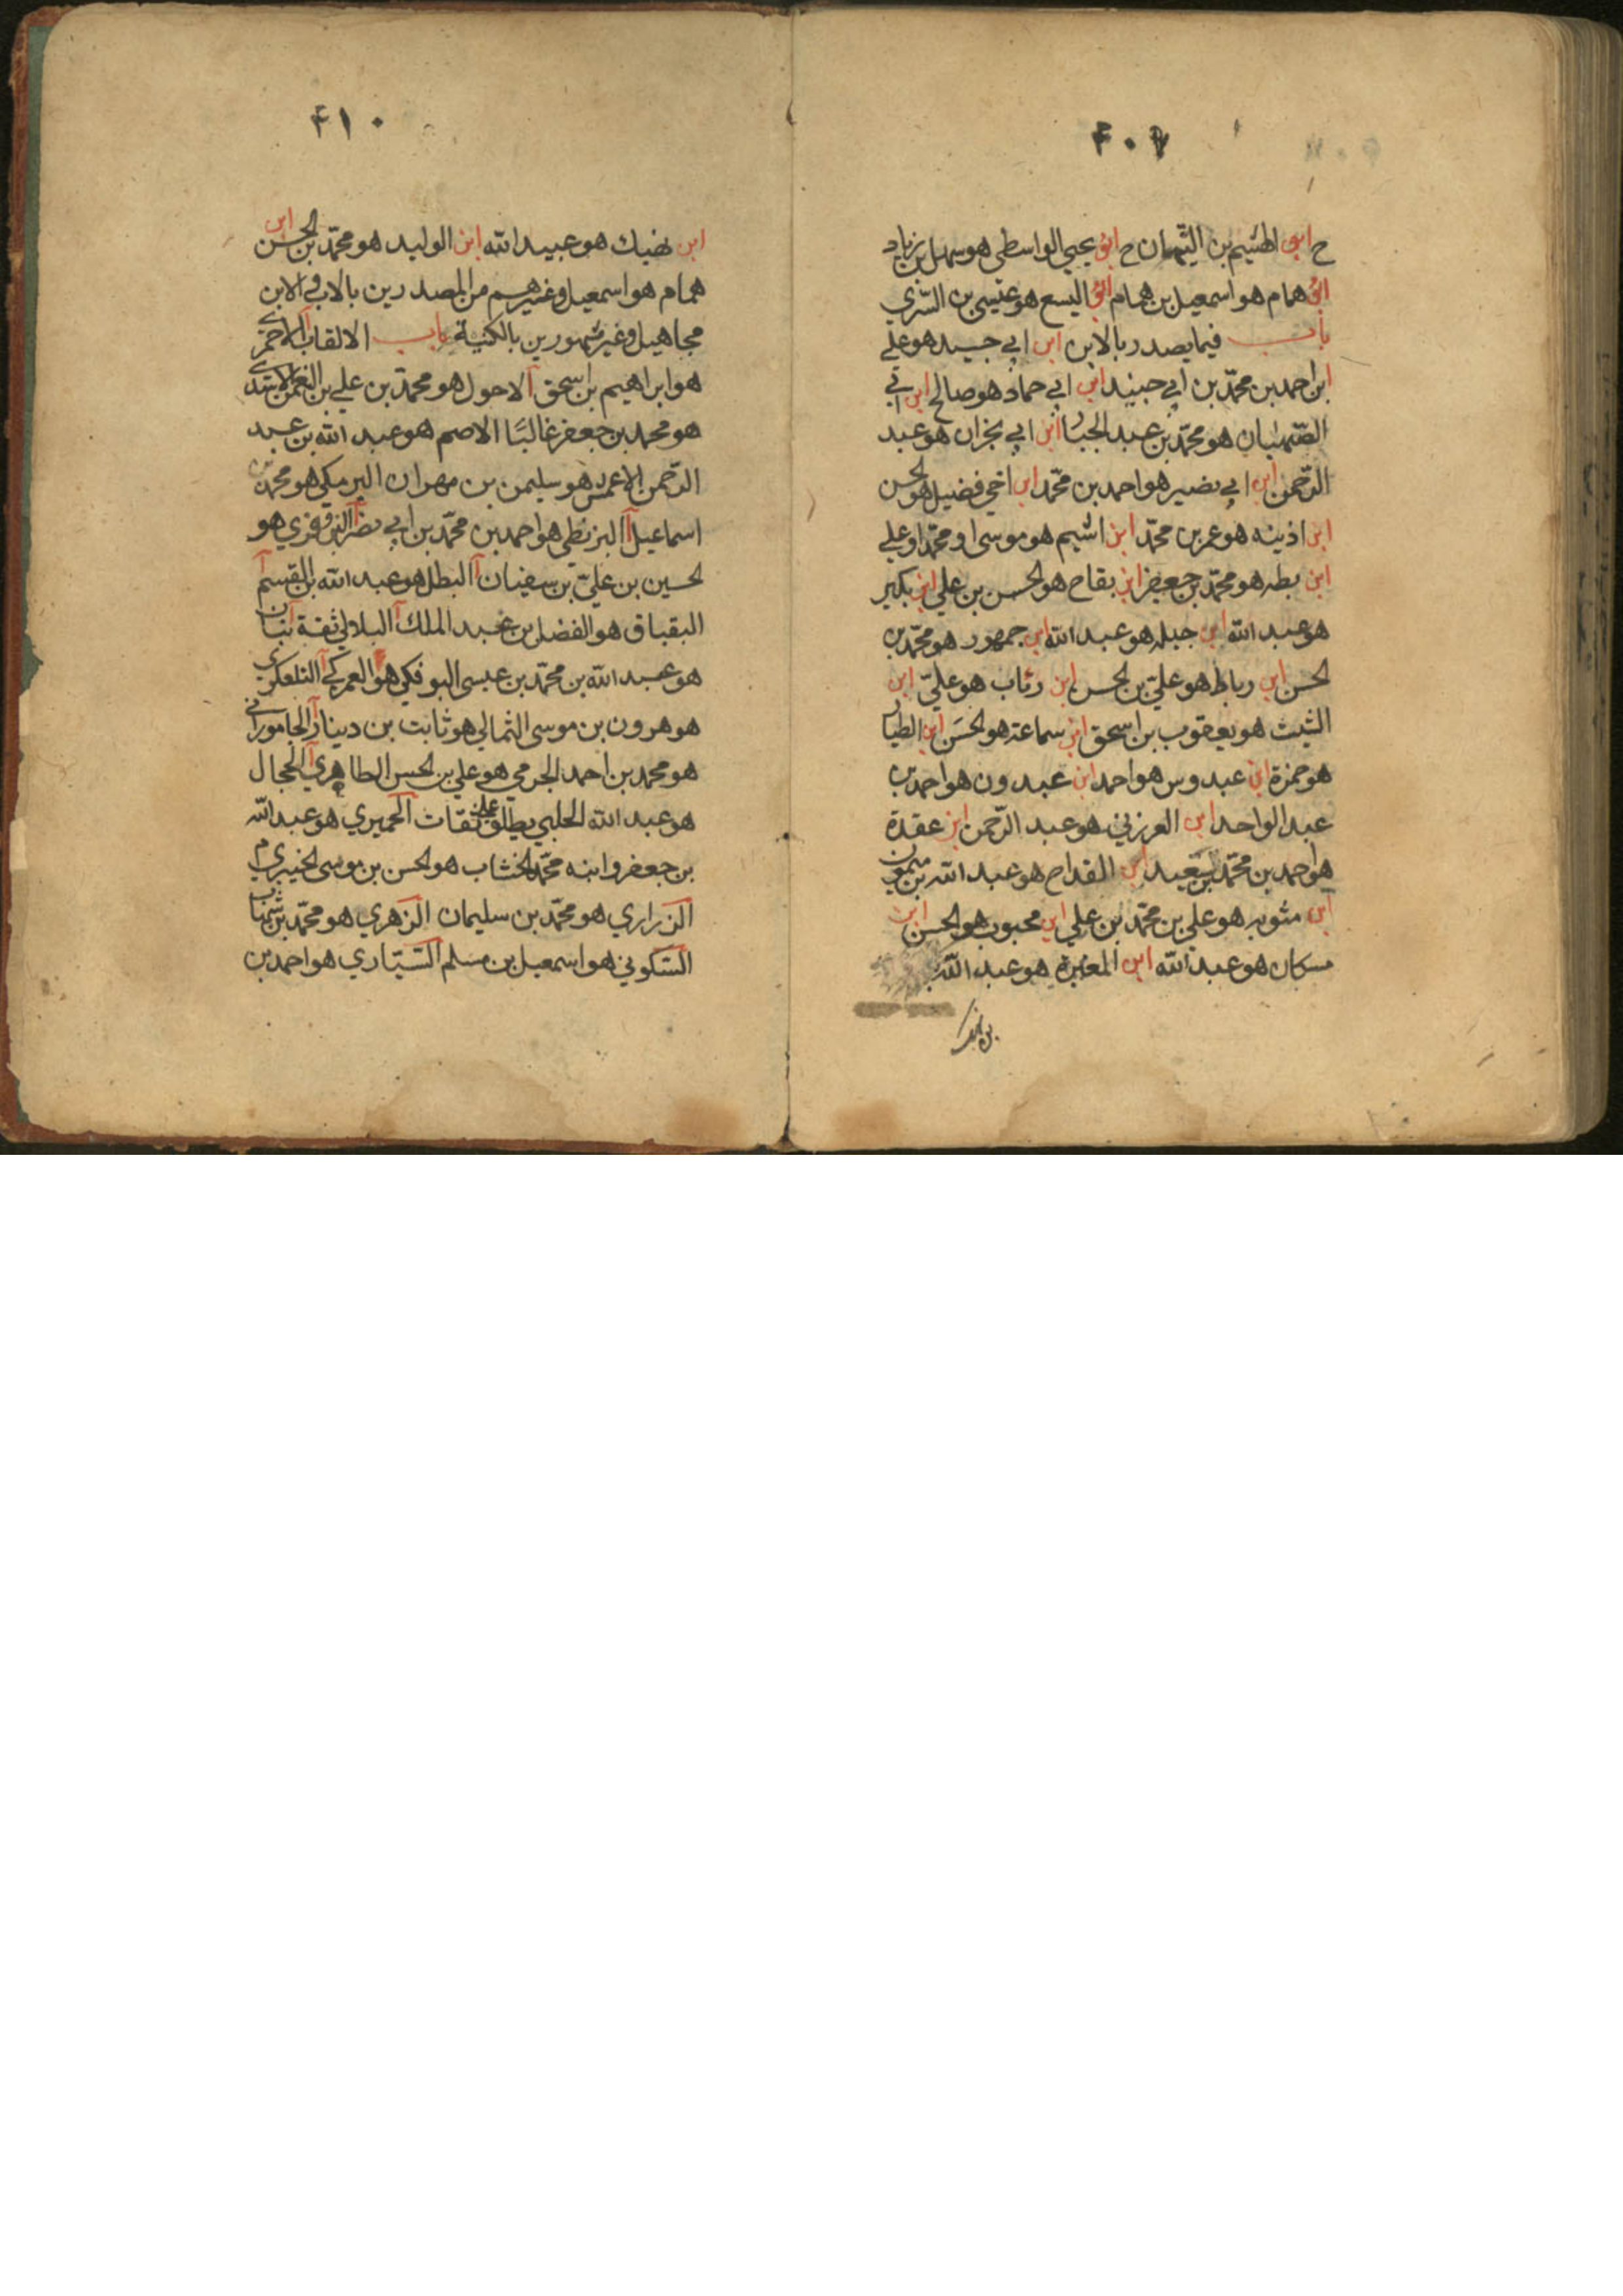 ۴۰۹
ح ابو الهيثم بن التيهان ح ابو يحيى الواسطى هو سهيل بن زياد
ابو همام هو اسمعيل بن همام ابو اليسع هو عيسى بن السّري
باب فيما يصدر بالابن ابن ابي جيد هو علي
ابن احمد بن محمّد بن ابي جنيد ابن ابي حماد هو صالح ابن ابي
الصّهبان هو محمّد بن عبد الجبار ابن ابي نجران هو عبد
الرّحمن ابن ابي نصير هو احمد بن محمّد ابن اخي فضيل هو الحسن
ابن اذينه هو عمر بن محمّد ابن اشيم هو موسى او محمّد او علي
ابن بطه هو محمّد بن جعفر ابن بقاح هو الحسن بن علي ابن بكير
هو عبد الله ابن جبله هو عبد الله ابن جمهور هو محمّد بن
الحسن ابن رباط هو عليّ بن الحسن ابن رئاب هو عليّ ابن
السّكيت هو يعقوب بن اسحق ابن سماعة هو الحسَن ابن الطيار
هو حمزة ابن عبدوس هو احمد ابن عبدون هو احمد بن
عبد الواحد ابن العرزني هو عبد الرّحمن ابن عقدة
هو احمد بن محمّد بن سعيد ابن القداح هو عبد الله بن ميمون
ابن متويه هو علي بن محمّد بن علي ابن محبوب هو الحسن ابن
مسكان هو عبد الله ابن المغيرة هو عبد الله
ابن نهيك
۴۱۰
ابن نهيك هو عبيد الله ابن الوليد هو محمّد بن الحسن ابن
همام هو اسمعيل وغيرهم من المصدرين بالاب والابن
مجاهيل وغير مشهورين بالكنية باب الالقاب الاحمري
هو ابراهيم بن اسحق الاحول هو محمّد بن علي بن النعمن الاسدي
هو محمد بن جعفر غالبًا الاصم هو عبد الله بن عبد
الرّحمن الاعمش هو سليمن بن مهران البرمكي هو محمّد بن
اسماعيل البزنطي هو احمد بن محمّد بن ابي نصر البزوفري هو
لحسين بن عليّ بن سفيان البطل هو عبد الله بن القسم
البقباق هو الفضل بن عبد الملك البلالي ثقة بنان
هو عبد الله بن محمّد بن عيسى البوفكي هو العمركي التلعكبري
هو هرون بن موسى الثمالي هو ثابت بن دينار الجاموراني
هو محمد بن احمد الجرمي هو علي بن الحسن الطاهري الحجال
هو عبد الله الحلبي يطلق على ثقات الحميري هو عبد الله
بن جعفر وابنه محمّد الخشاب هو الحسن بن موسى الخيبري
الزراري هو محمّد بن سليمان الزهري هو محمّد بن شهاب
السّكوني هو اسمعيل بن مسلم السّيّاري هو احمد بن